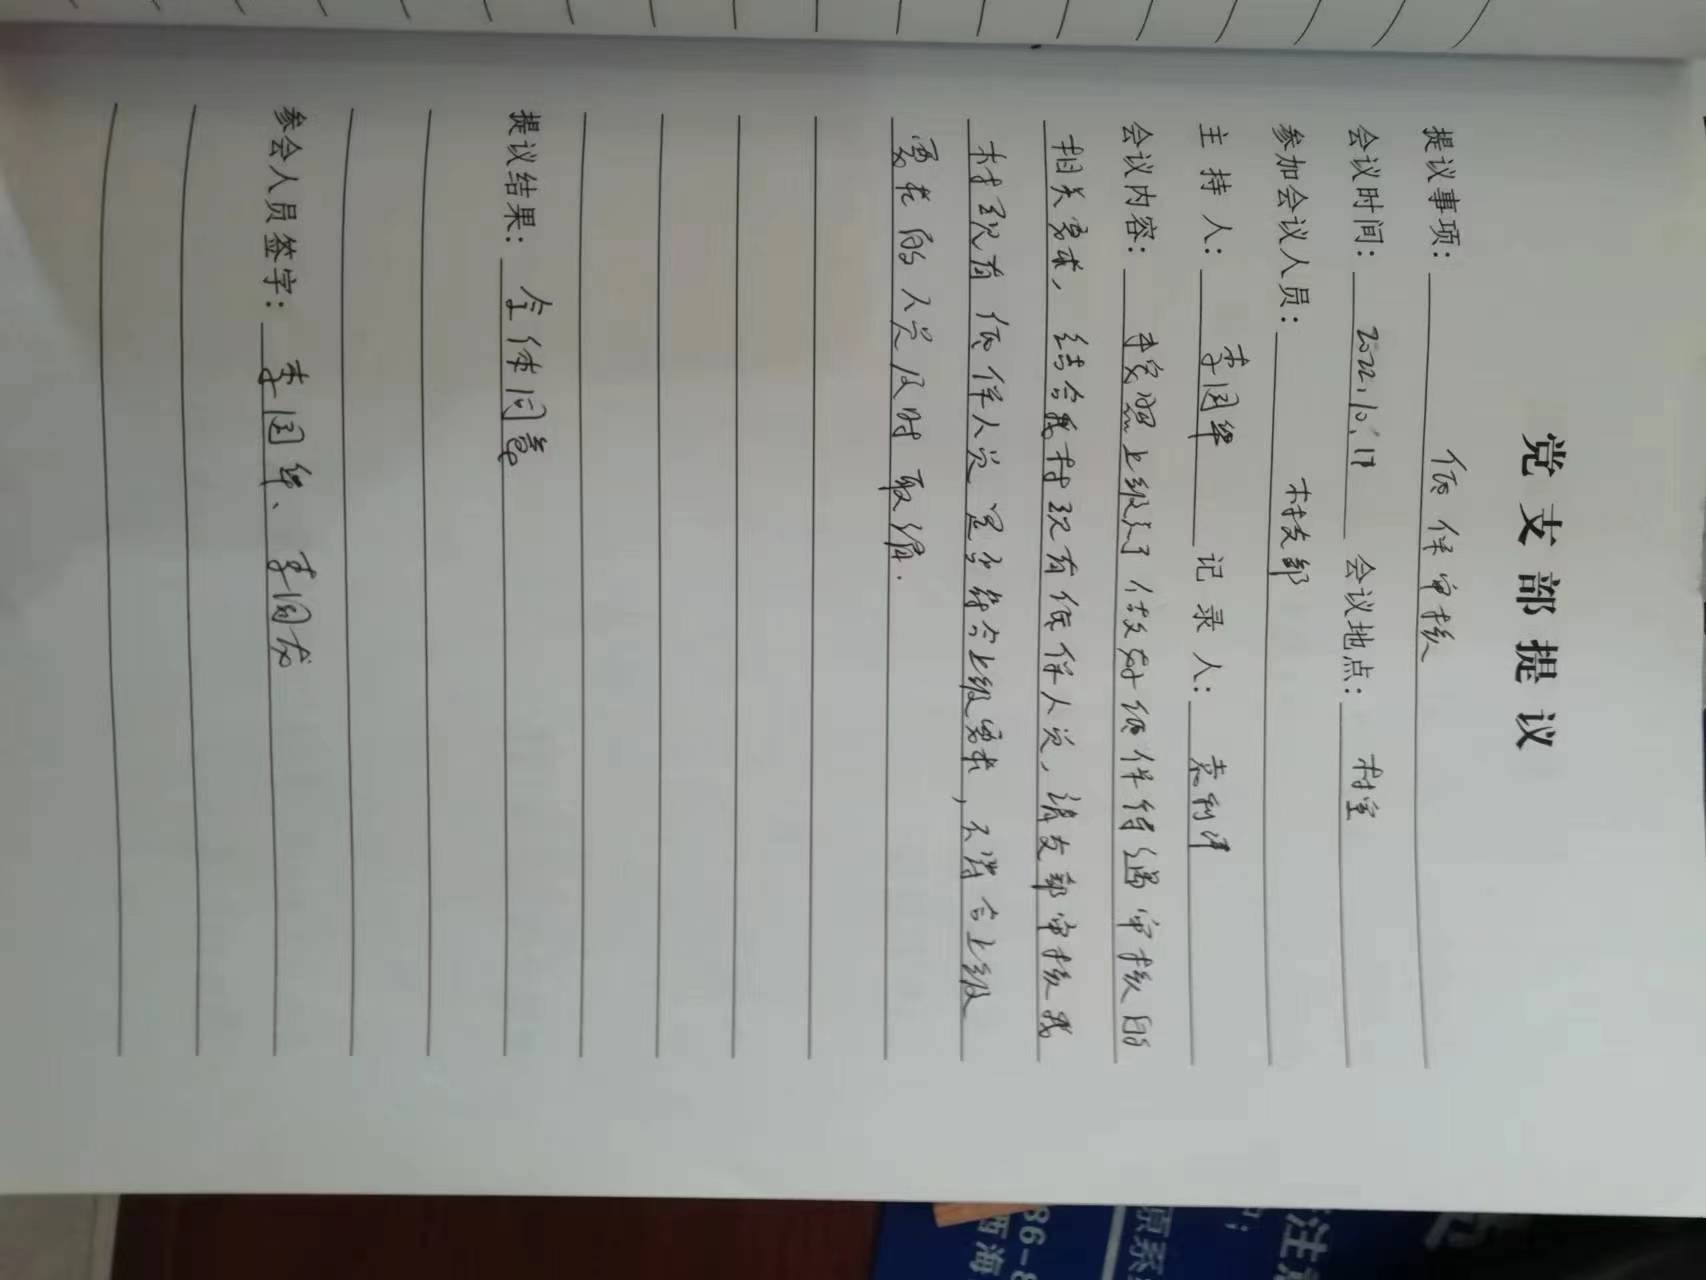 党支部提议
提议事项： 低保审核
会议时间： 2022.10.17 会议地点： 村室
参加会议人员： 村支部
主持人： 李国华 记录人： 袁利洋
会议内容： 李家照上级关于做好低保待遇审核的
相关要求，结合我村现有低保人员，请支部审核我
村现有低保人员是否符合上级要求，不符合上级
要求的人员及时取消.
提议结果： 全体同意
参会人员签字： 李国华、李国
86-8
西海
原系
注